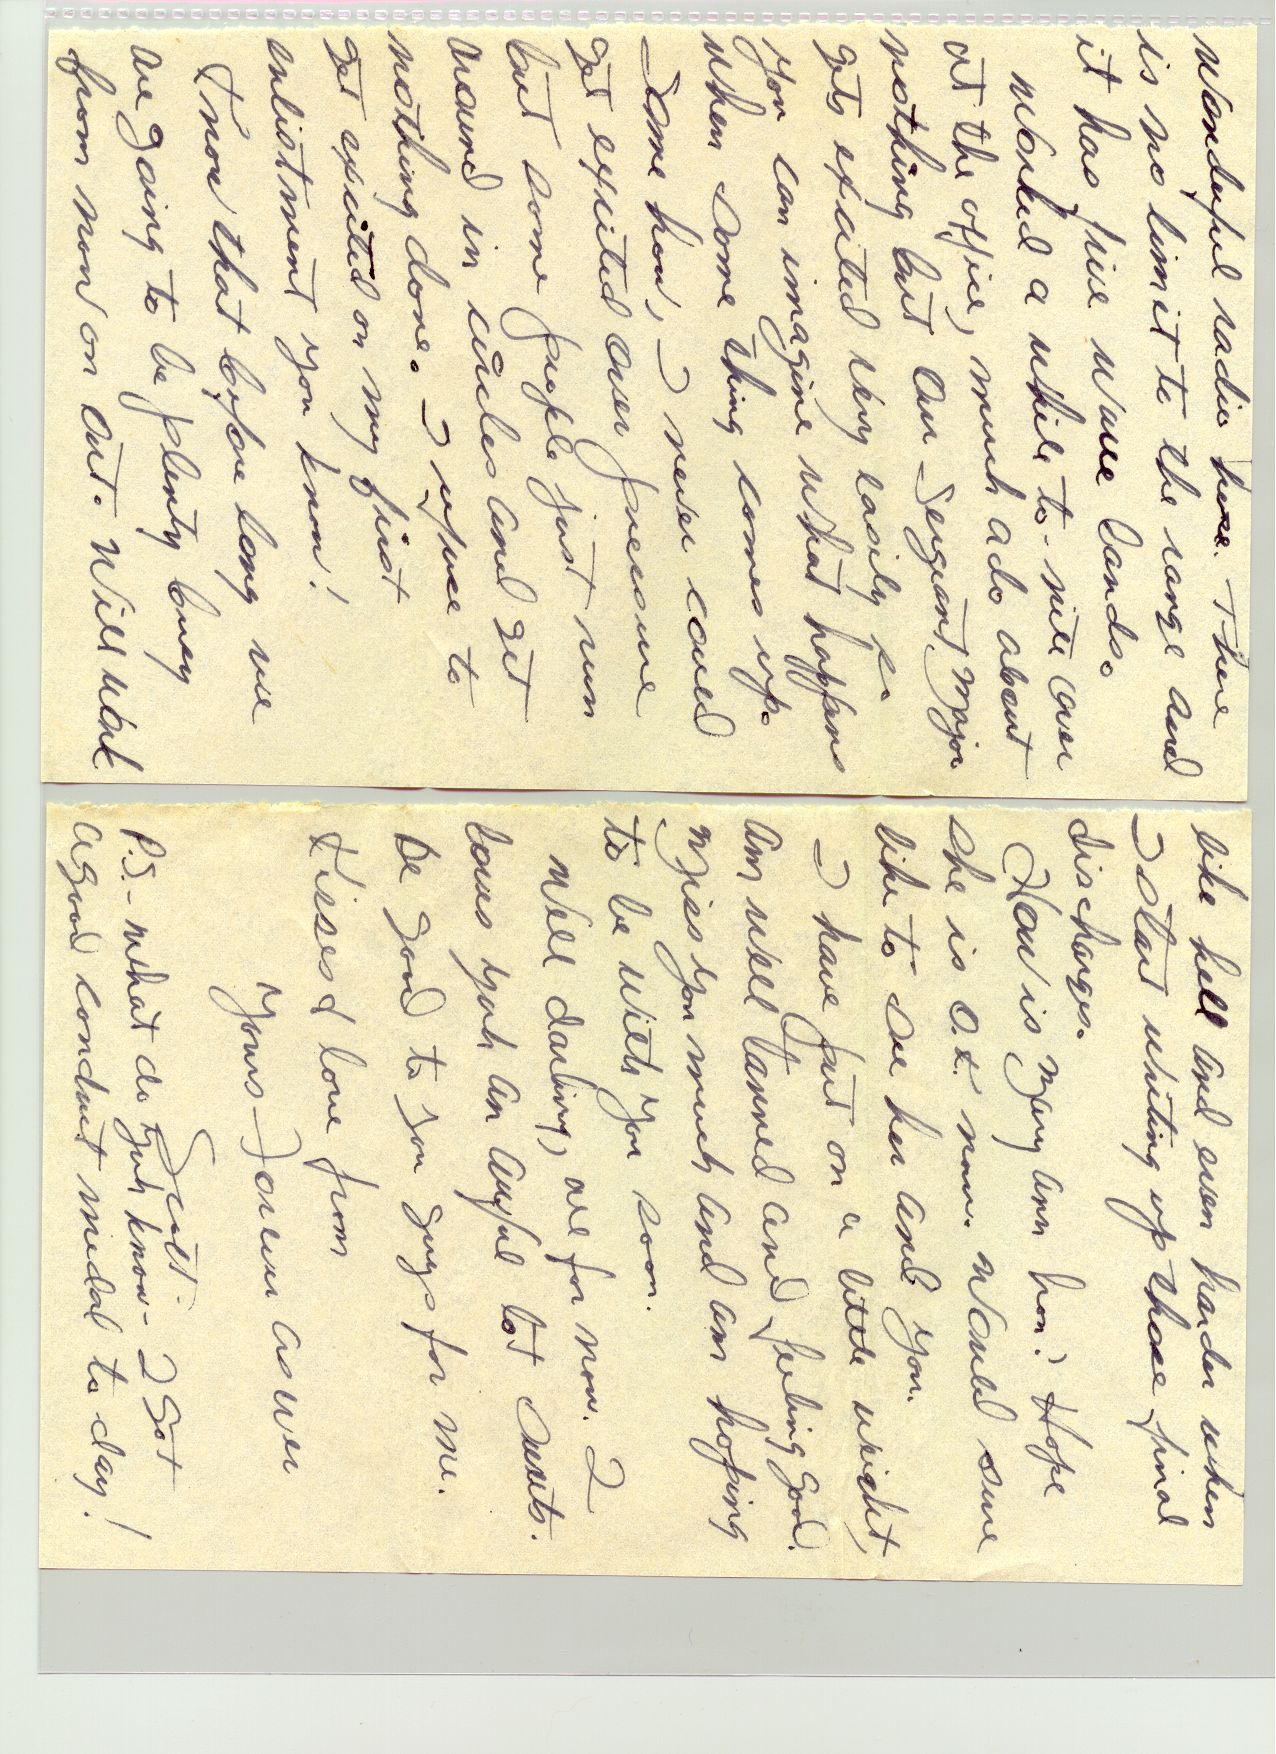 Wonderful radio here. There
is no limit to the range and
it has five wave bands.
Worked a while to-nite over
at the office, much ado about
nothing but our Sergeant Major
gets excited very easily so
you can imagine what happens
when some thing comes up.
Some how, I never could
get excited over pressure
but some people just run
around in circles and get
nothing done. I refuse to
get excited on my first
enlistment you know!
I know that before long we
are going to be plenty busy
from now on out. Will work
like hell and even harder when
I start writing up those final
discharges.
How is Mary Ann hon? Hope
she is O.K. now. Would sure
like to see her and you.
I have put on a little weight,
am well tanned and feeling good.
Miss you much and am hoping
to be with you soon.
Well darling, all for now. I
loves yuh an awful lot Sweets.
Be good to you guys for me.
Kisses & love from
Yours - Forever as ever
P.S. - What do yuh know - I got
a good conduct medal to day!